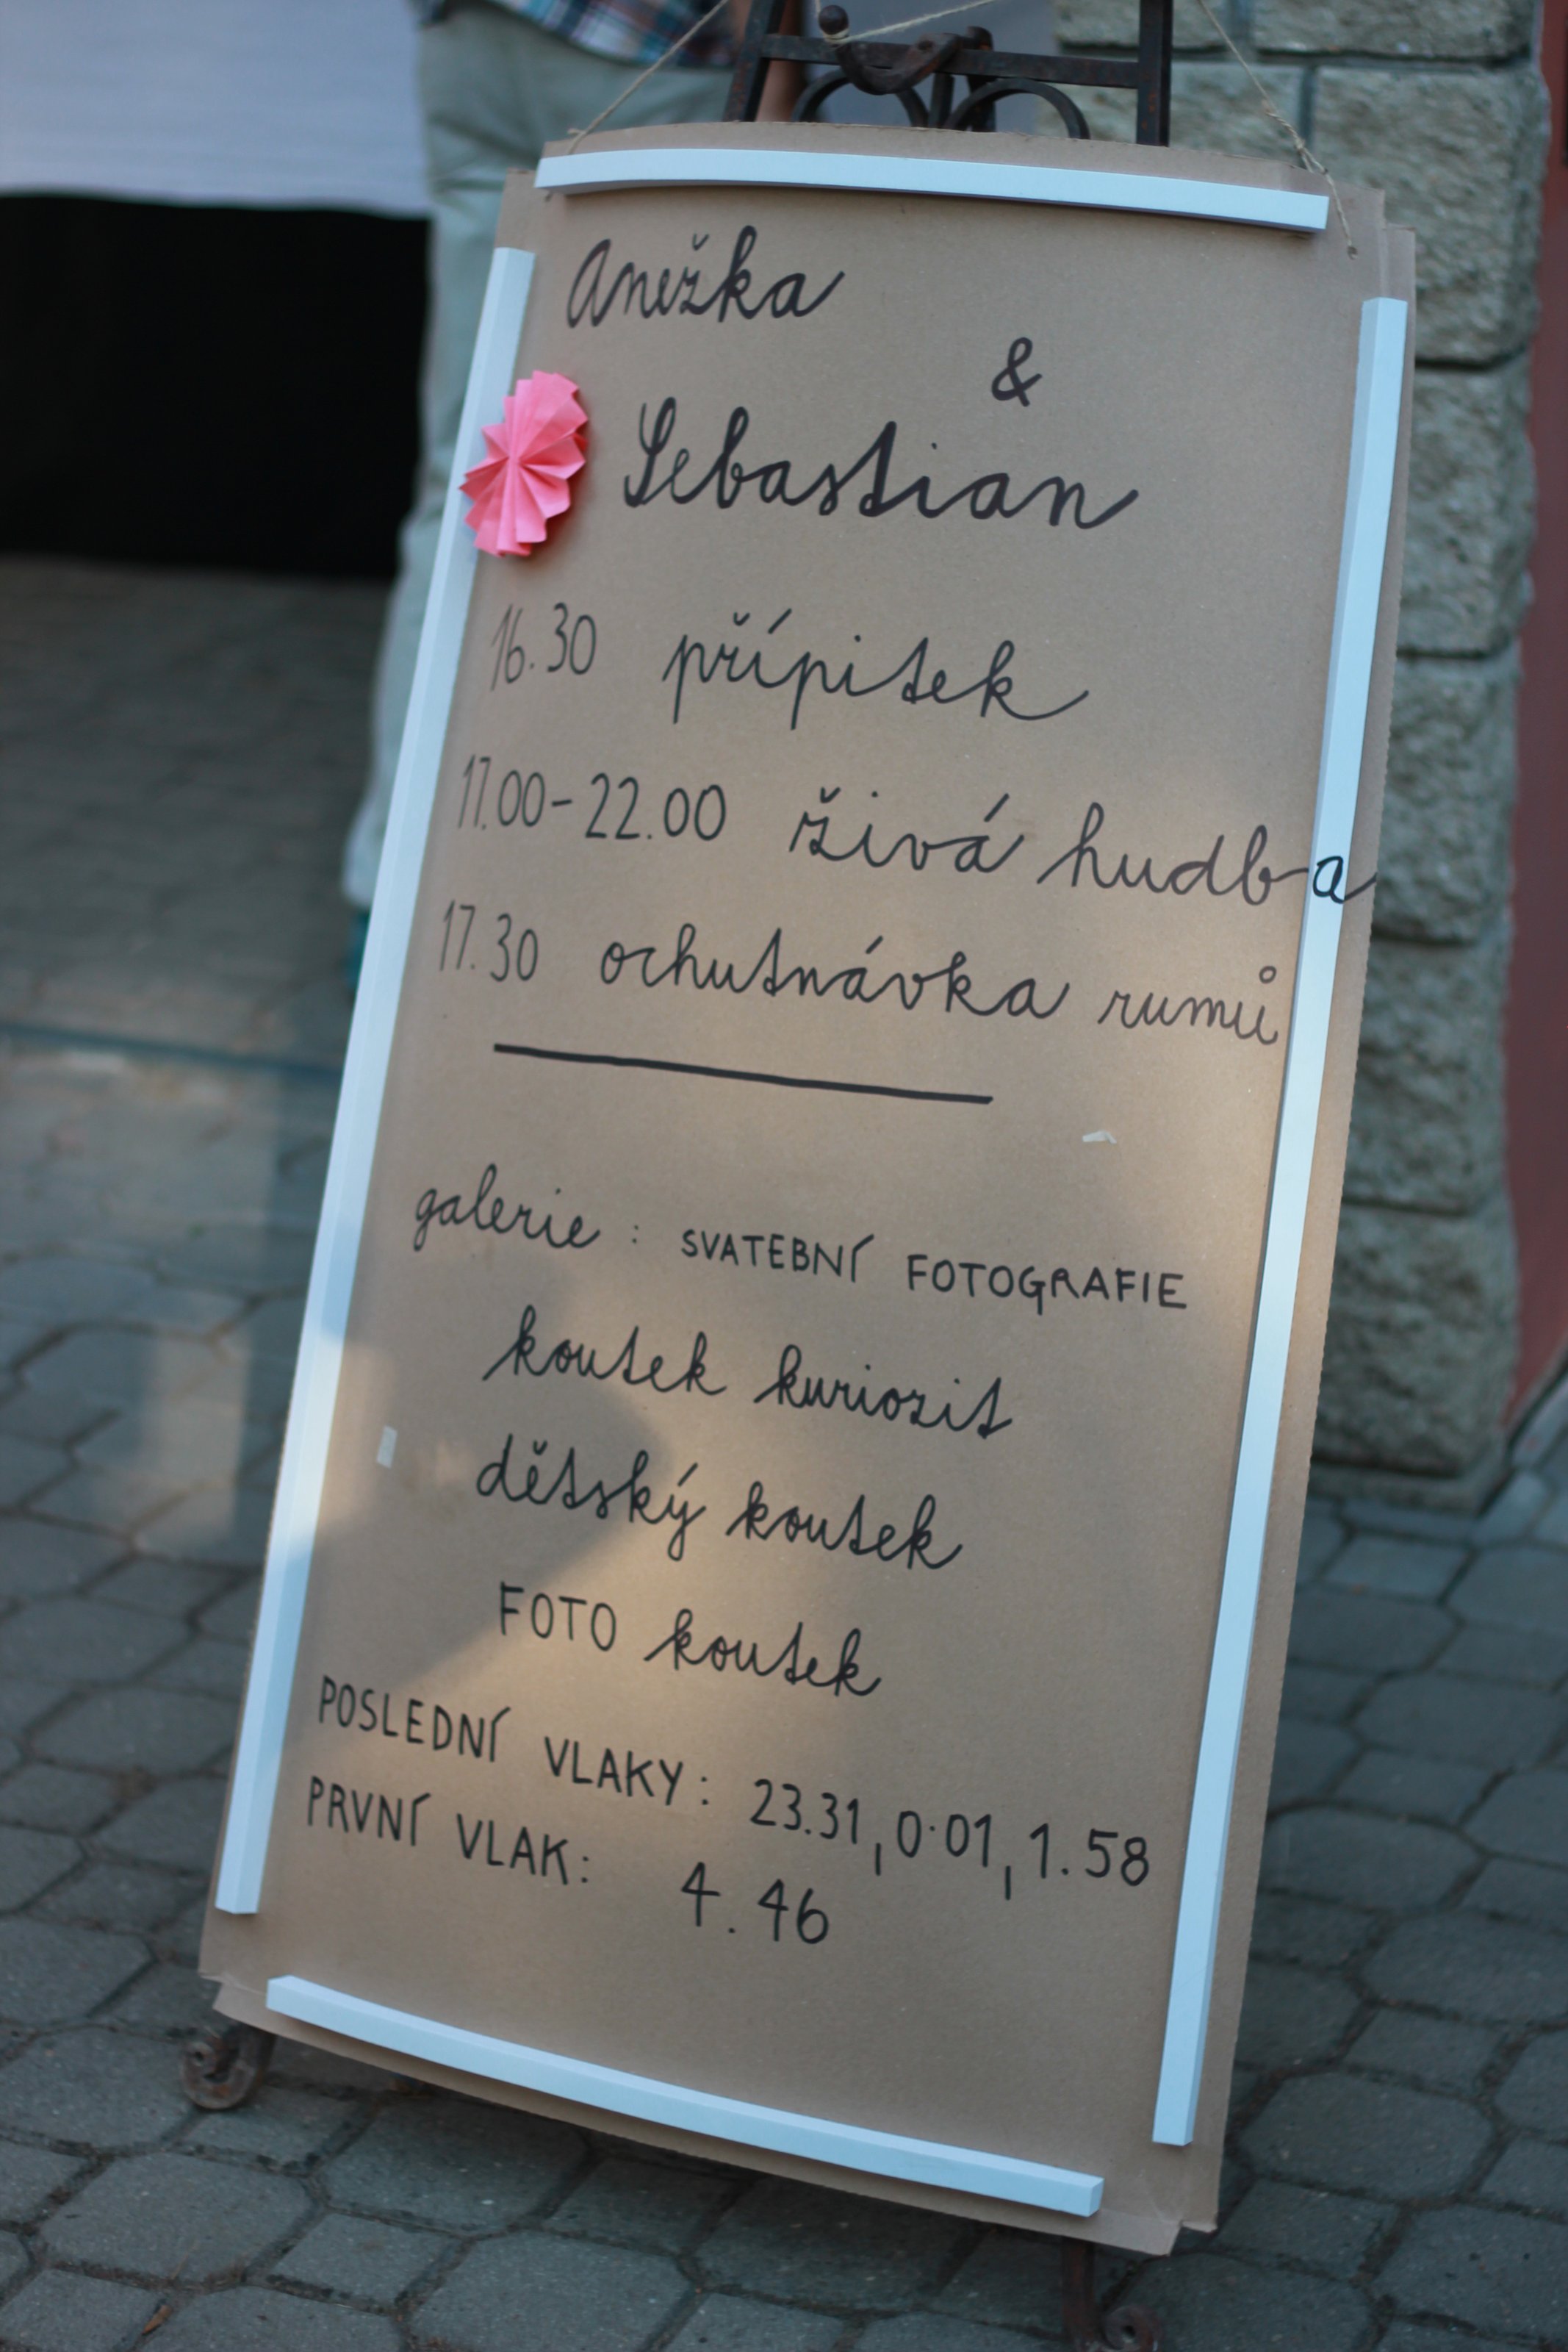 Anežka
&
Sebastian
16.30 přípitek
17.00-22.00 živá hudba
17.30 ochutnávka rumů
galerie : SVATEBNÍ FOTOGRAFIE
koutek kuriozit
dětský koutek
FOTO koutek
POSLEDNÍ VLAKY: 23.31, 0.01, 1.58
PRVNÍ VLAK: 4.46